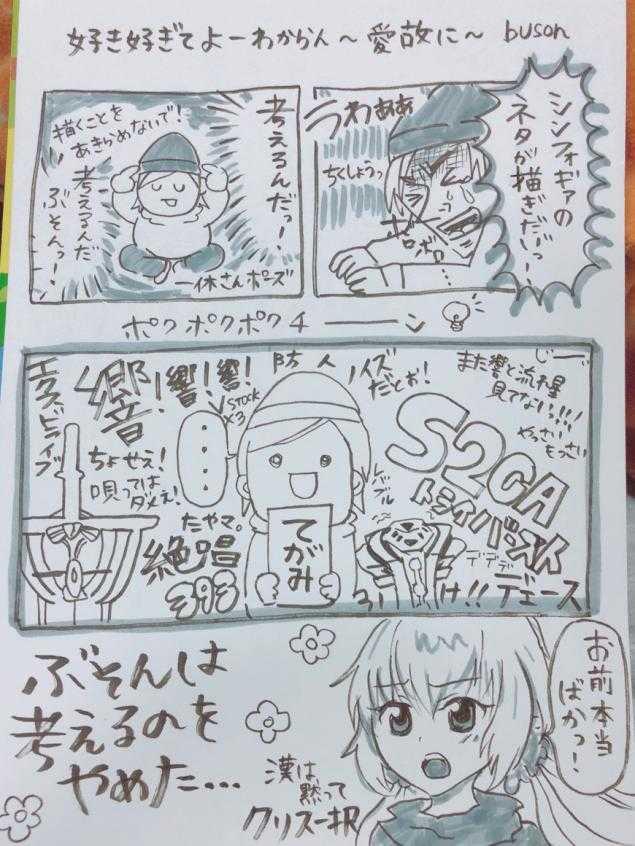 好き好きてよーわからん〜愛故に〜 buson
シンフォギアの
ネタが描きだいっー!
うわぁあ
ちくしょうっ
ボロボロ
考えるんだっー!
描くことを
あきらめないで!
考えるんだ
ぶそんっー!
一休さんポーズ
ポクポクポクチーーン
じー、
また響と流れ星
見てない!!!!
やっさい
もっさい
S2CA
トライバースト
防人
ノイズ
だとぉ!
響!響!響!
エクスドライブ
STOCK
×3
・・・・
ちょせえ!
唄っては
ダメぇ!
たやマ。
絶唱
393
てがみ
デデデ
デェース
お前本当
ばかっ!
ぶそんは
考えるのを
やめた…
漢は
黙って
クリス一択